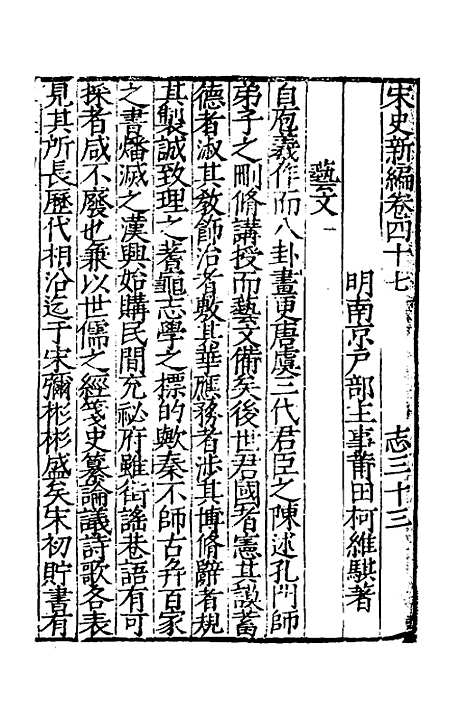 宋史新編卷四十七　志三十三
明南京戶部主事莆田柯維騏著
藝文一
自庖羲作而八卦畫更唐虞三代君臣之陳述孔門師
弟子之刪脩講授而藝文備矣後世君國者憲其謨畜
德者淑其敎飾治者敷其華應務者涉其博脩辭者規
其製誠致理之蓍龜志學之標的歟秦不師古弁百家
之書燔滅之漢興始購民間充祕府雖街謠巷語有可
採者咸不廢也兼以世儒之經箋史纂論議詩歌各表
見其所長歷代相沿迄于宋彌彬彬盛矣宋初貯書有